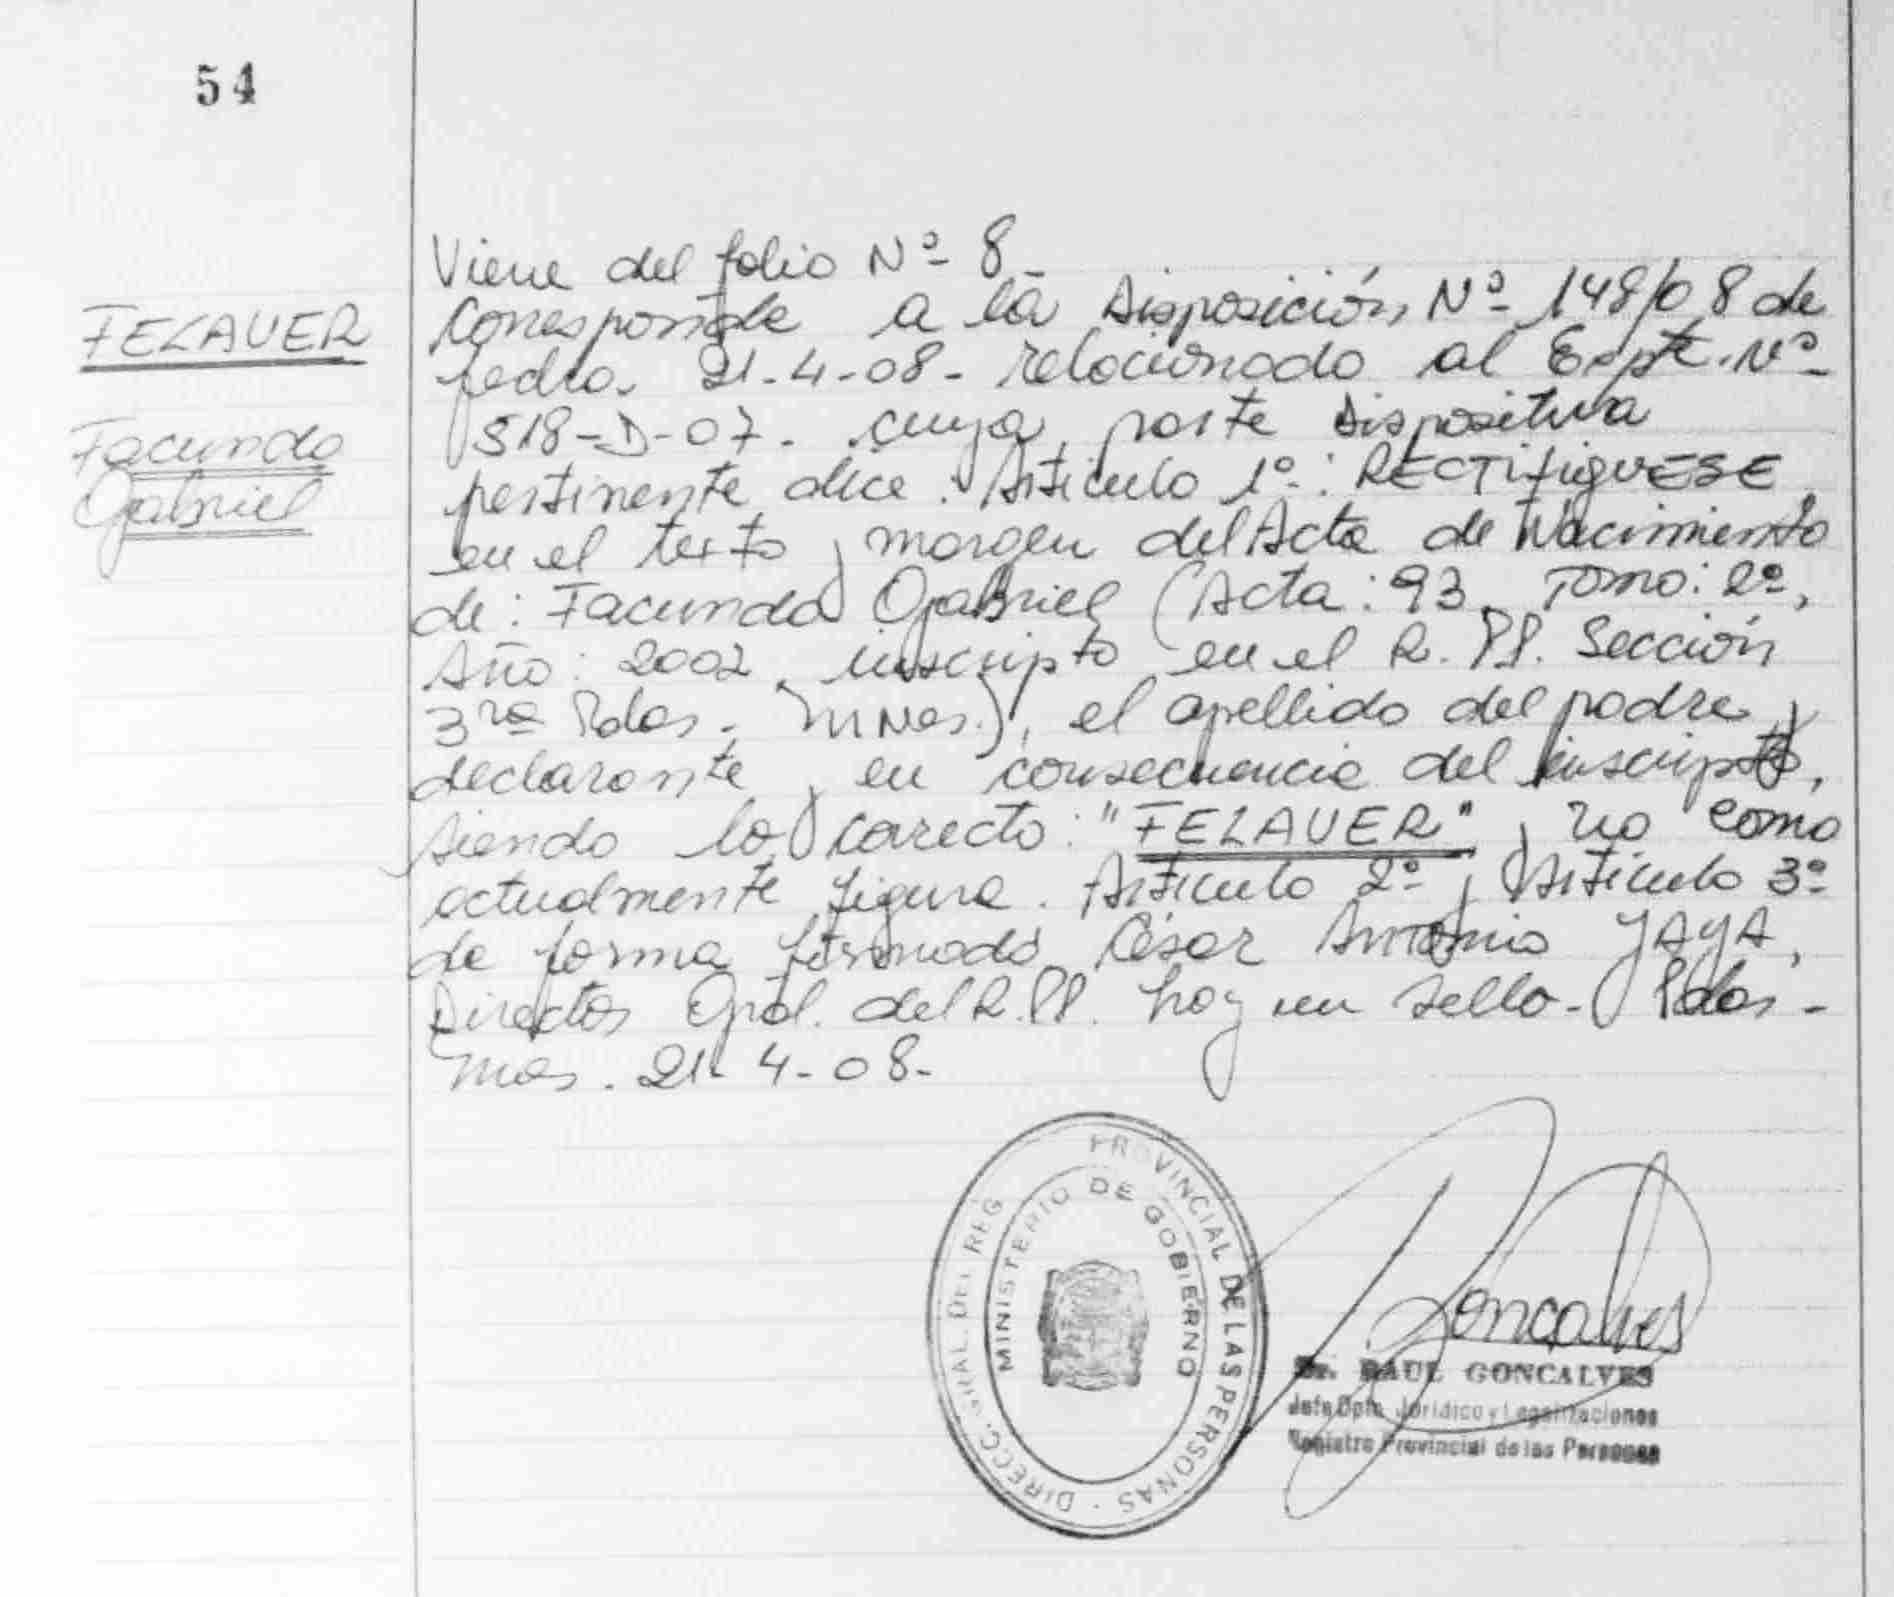 54
FELAUER
Facundo
Gabriel
Viene del folio Nº 8_
Corresponde a la Disposición Nº 148/08 de
fecha 21-4-08- relacionado al Expte. Nº
518-D-07. cuya parte dispositiva
pertinente dice: Artículo 1º: RECTIFIQUESE
en el texto y margen del Acta de Nacimiento
de: Facundo Gabriel (Acta: 93, Tomo: 2º,
Año: 2002, inscripto en el R.PP. Sección
3ra Pdas. Mnes.), el apellido del padre y
declarante y en consecuencia del inscripto,
siendo lo correcto: "FELAUER" y no como
actualmente figura. Artículo 2º y Artículo 3º
de forma firmado César Antonio YAYA,
Director Gral. del R.PP. hay un sello- Pdas-
Mnes. 21-4-08-
DIRECC. GRAL. DEL REG. PROVINCIAL DE LAS PERSONAS
MINISTERIO DE GOBIERNO
Goncalves
Dr. RAUL GONCALVES
Jefe Dpto. Jurídico y Legalizaciones
Registro Provincial de las Personas